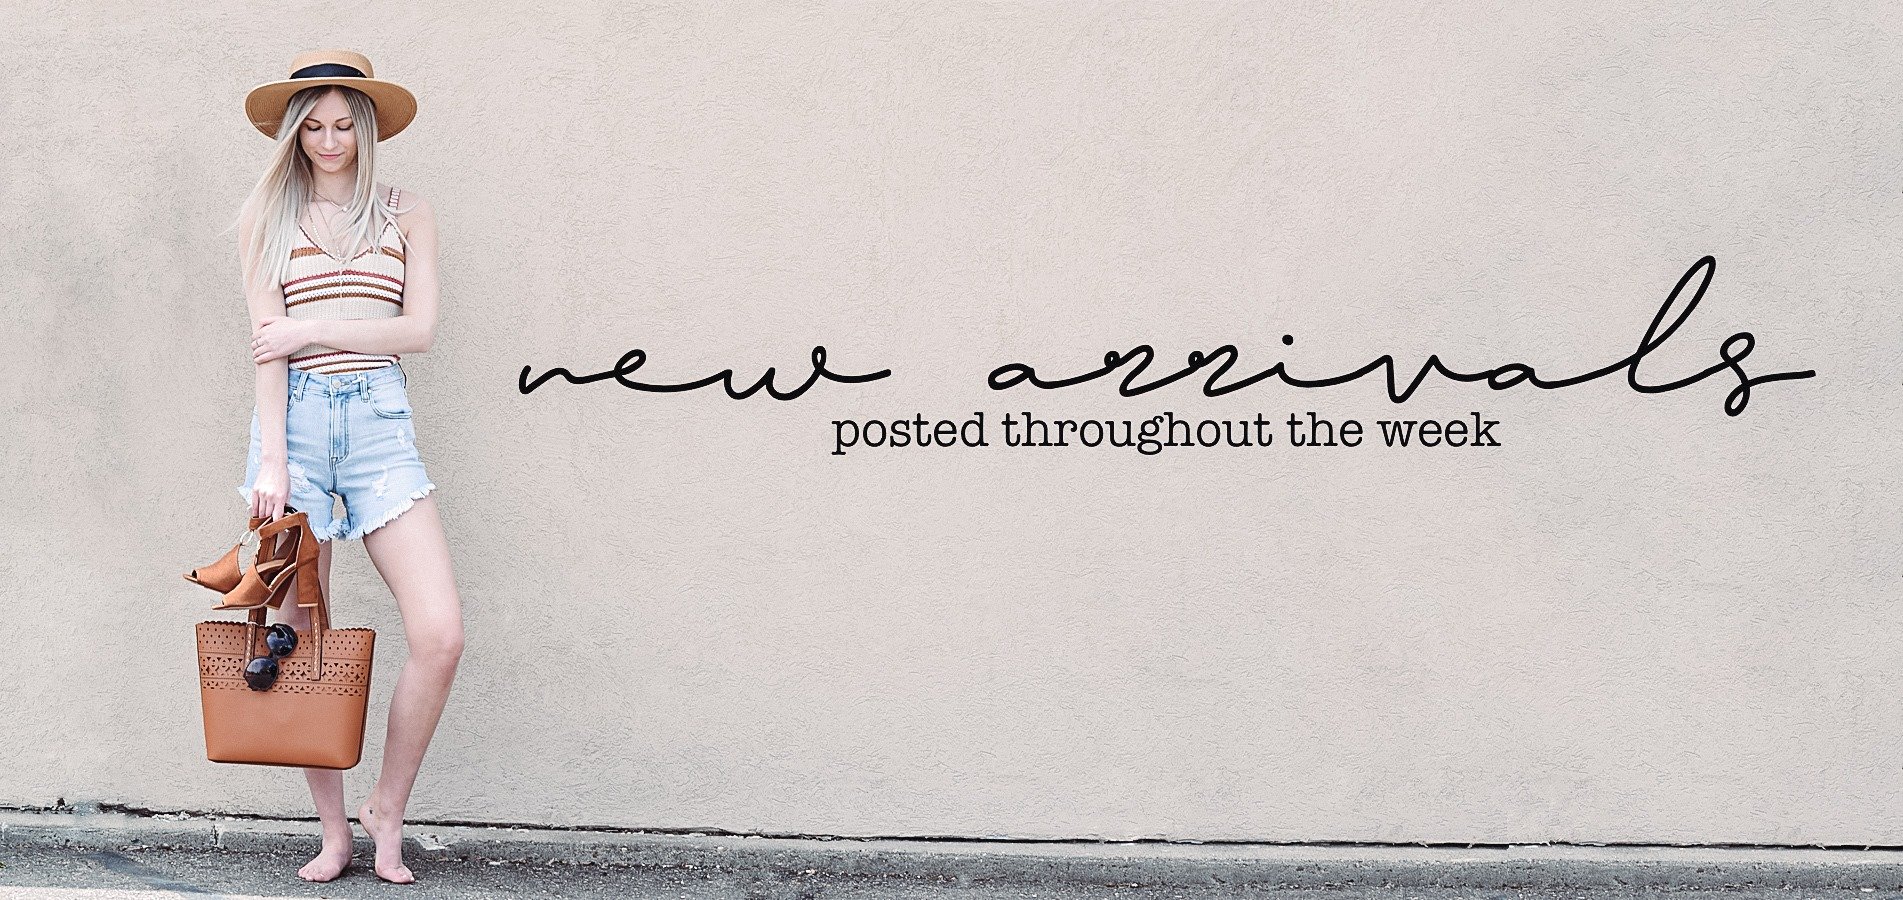 new arrivals
posted throughout the week